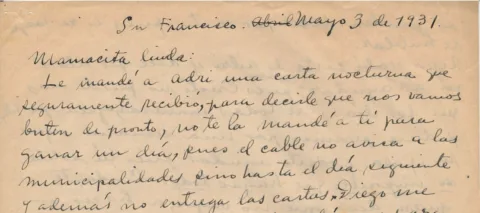 Sn Francisco. Abril Mayo 3 de 1931.
Mamacita linda:
Le mandé a Adri una carta nocturna que
seguramente recibió, para decirle que nos vamos
de pronto, no te la mandé a tí para
ganar un día, pues el cable no avisa a las
municipalidades sino hasta el día siguiente
y además no entrega las cartas. Diego me